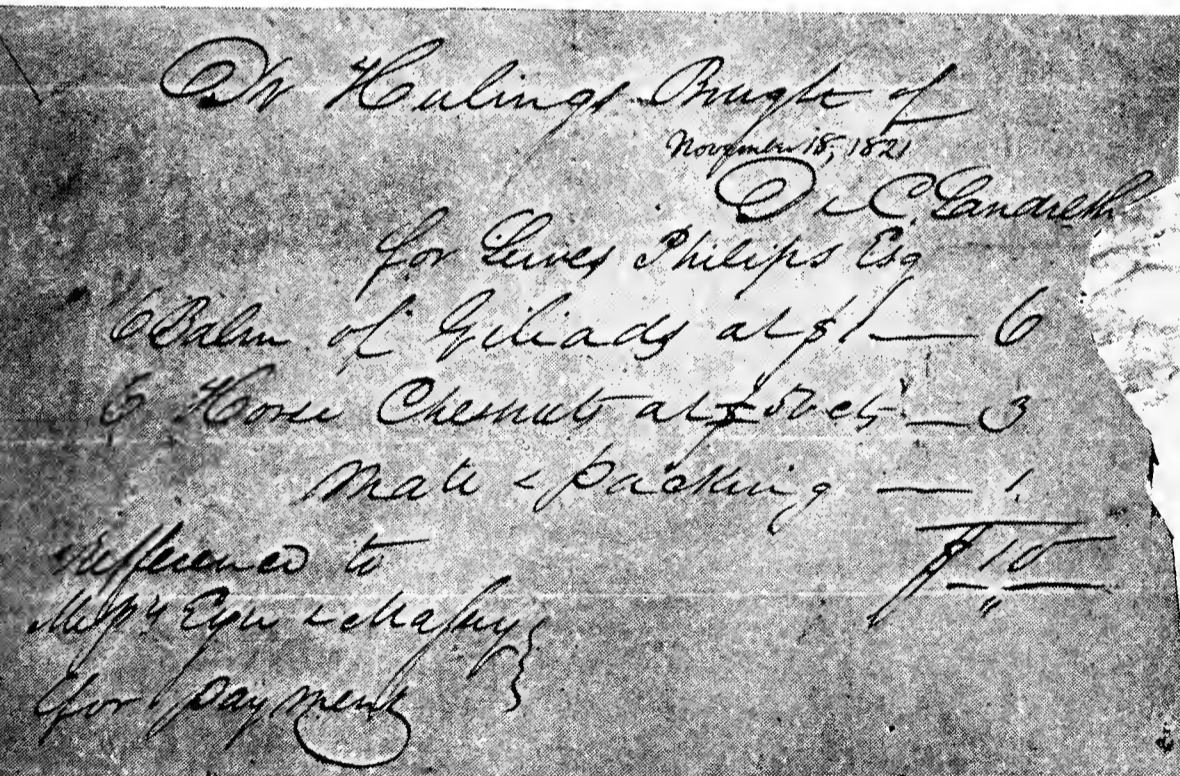 Dr Hulings Bought of
November 18, 1821
D & C. Landreth
for Lewes Philips Esq
6 Balm of Giliads at $1 — 6
6 Horse Chesnuts at 50 cts — 3
Mats & packing — 1.
$10
Refference to
Messrs Eyre & Massey
for payment